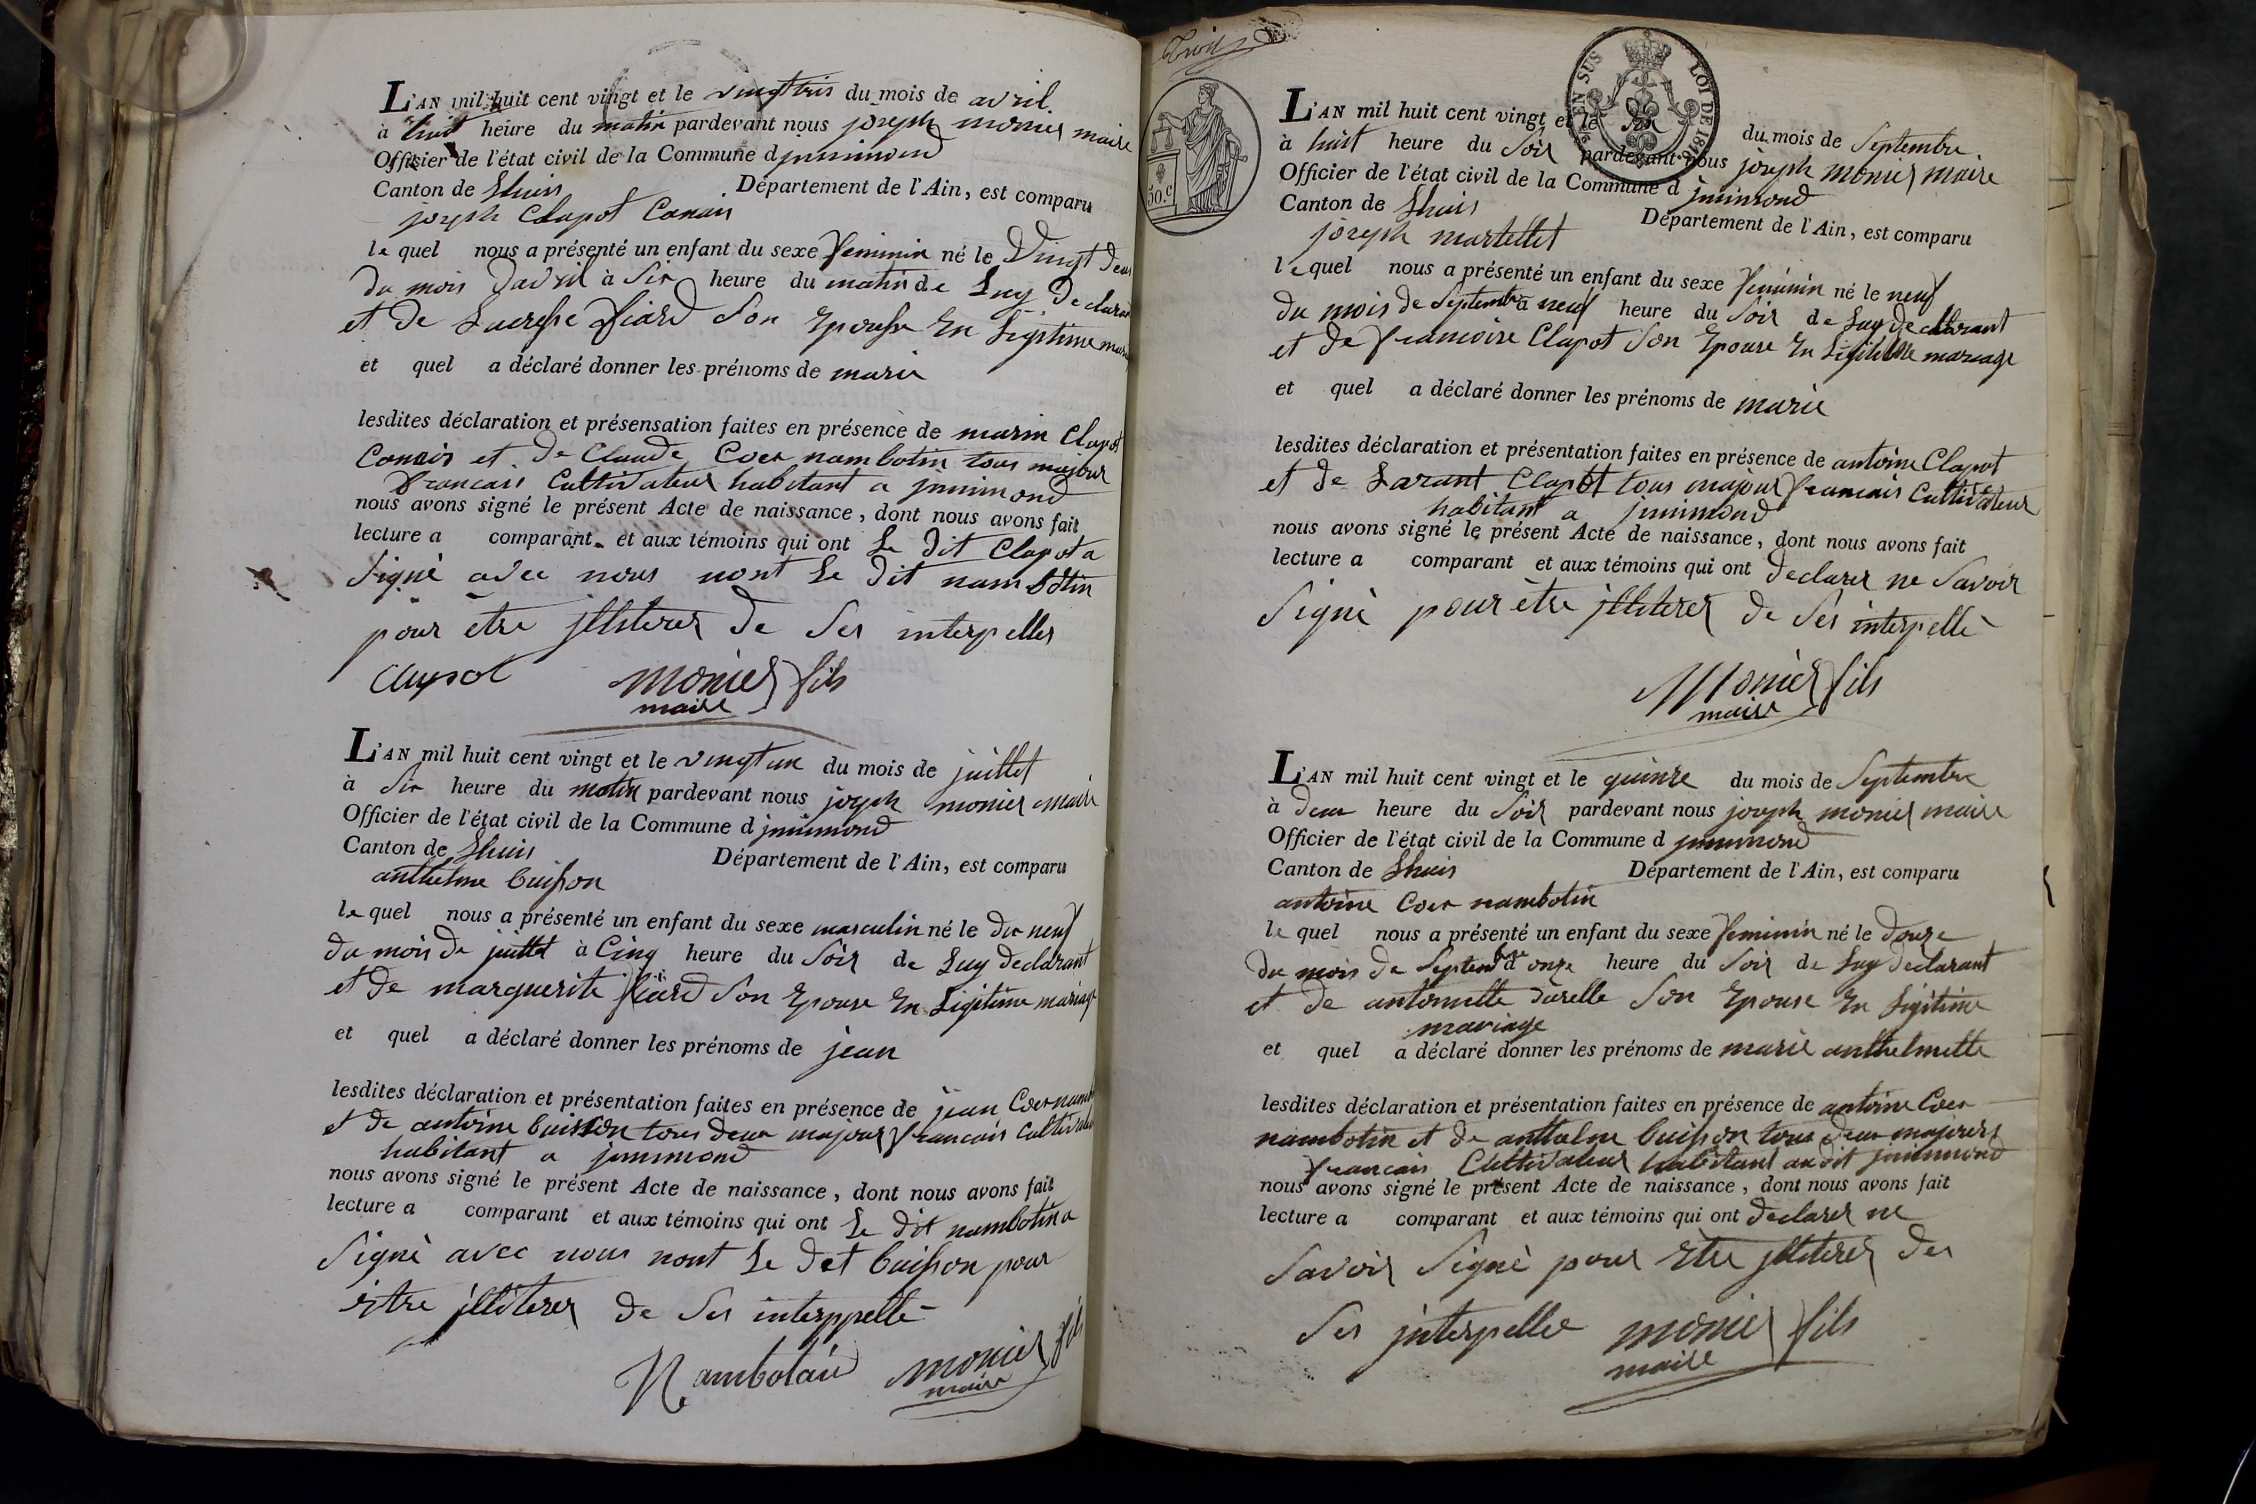 L'AN mil huit cent vingt et le vingttrois du mois de avril
à huit heure du matin pardevant nous joseph monier maire
Officier de l'état civil de la Commune d jnnimond
Canton de Lhuis Département de l'Ain, est comparu
joseph Clapot Conair
le quel nous a présenté un enfant du sexe feminin né le Vingt deux
du mois davril à Six heure du matin de Luy Declarant
et de Lucresse fiard Son Epouse En Légitime
et quel a déclaré donner les prénoms de marie
lesdites déclaration et présensation faites en présence de marin Clapot
Conair et de Claude Coer nambotin tous majour
francais Cultivateur habitant a jnnimond
nous avons signé le présent Acte de naissance, dont nous avons fait
lecture a comparant et aux témoins qui ont Le dit Clapot a
Signé avec nous nont Le dit nambotin
pour etre jlliterer de Ses interpeller
Clapot monier fils
maire
L'AN mil huit cent vingt et le vingt un du mois de juillet
à Six heure du matin pardevant nous joseph monier maire
Officier de l'état civil de la Commune d jnnimond
Canton de Lhuis Département de l'Ain, est comparu
anthelme buisson
le quel nous a présenté un enfant du sexe masculin né le dix neuf
du mois de juillet à Cinq heure du Soir de Luy declarant
et de marguerite fiard Son Epouse En Légitime mariage
et quel a déclaré donner les prénoms de jean
lesdites déclaration et présentation faites en présence de jean Coer
et de antoine buisson tous deux majour francais Cultivateur
habitant a jnnimond
nous avons signé le présent Acte de naissance, dont nous avons fait
lecture a comparant et aux témoins qui ont Le dit nambotin a
Signé avec nous nont Le dit buisson pour
être jlliterer de Ses interppellé
Nambotain monier fils
maire
50.c
EN SUS LOI DE 1816
L'AN mil huit cent vingt et le du mois de Septembre
à huit heure du Soir pardevant nous joseph monier maire
Officier de l'état civil de la Commune d jnnimond
Canton de Lhuis Département de l'Ain, est comparu
joseph martellet
le quel nous a présenté un enfant du sexe feminin né le neuf
du mois de Septembre à neuf heure du Soir de Luy declarant
et de francoise Clapot Son Epouse En Légitime mariage
et quel a déclaré donner les prénoms de marie
lesdites déclaration et présentation faites en présence de antoine Clapot
et de Larant Clapot tous majour francais Cultivateur
habitant a jnnimond
nous avons signé le présent Acte de naissance, dont nous avons fait
lecture a comparant et aux témoins qui ont declarer ne Savoir
Signé pour être jlliterer de Ses interpellé
Monier fils
maire
L'AN mil huit cent vingt et le quinze du mois de Septembre
à deux heure du Soir pardevant nous joseph monier maire
Officier de l'état civil de la Commune d jnnimond
Canton de Lhuis Département de l'Ain, est comparu
antoine Coer nambotin
le quel nous a présenté un enfant du sexe feminin né le douze
du mois de Septembre onze heure du Soir de Luy declarant
et de antoinette Son Epouse En Légitime
mariage
et quel a déclaré donner les prénoms de marie anthelmette
lesdites déclaration et présentation faites en présence de antoine Coer
nambotin et de anthelme buisson tous deux majeurs
francais Cultivateur habitant audit jnnimond
nous avons signé le présent Acte de naissance, dont nous avons fait
lecture a comparant et aux témoins qui ont declarer ne
Savoir Signé pour Etre jlliterer der
Ses jnterpellee monier fils
maire